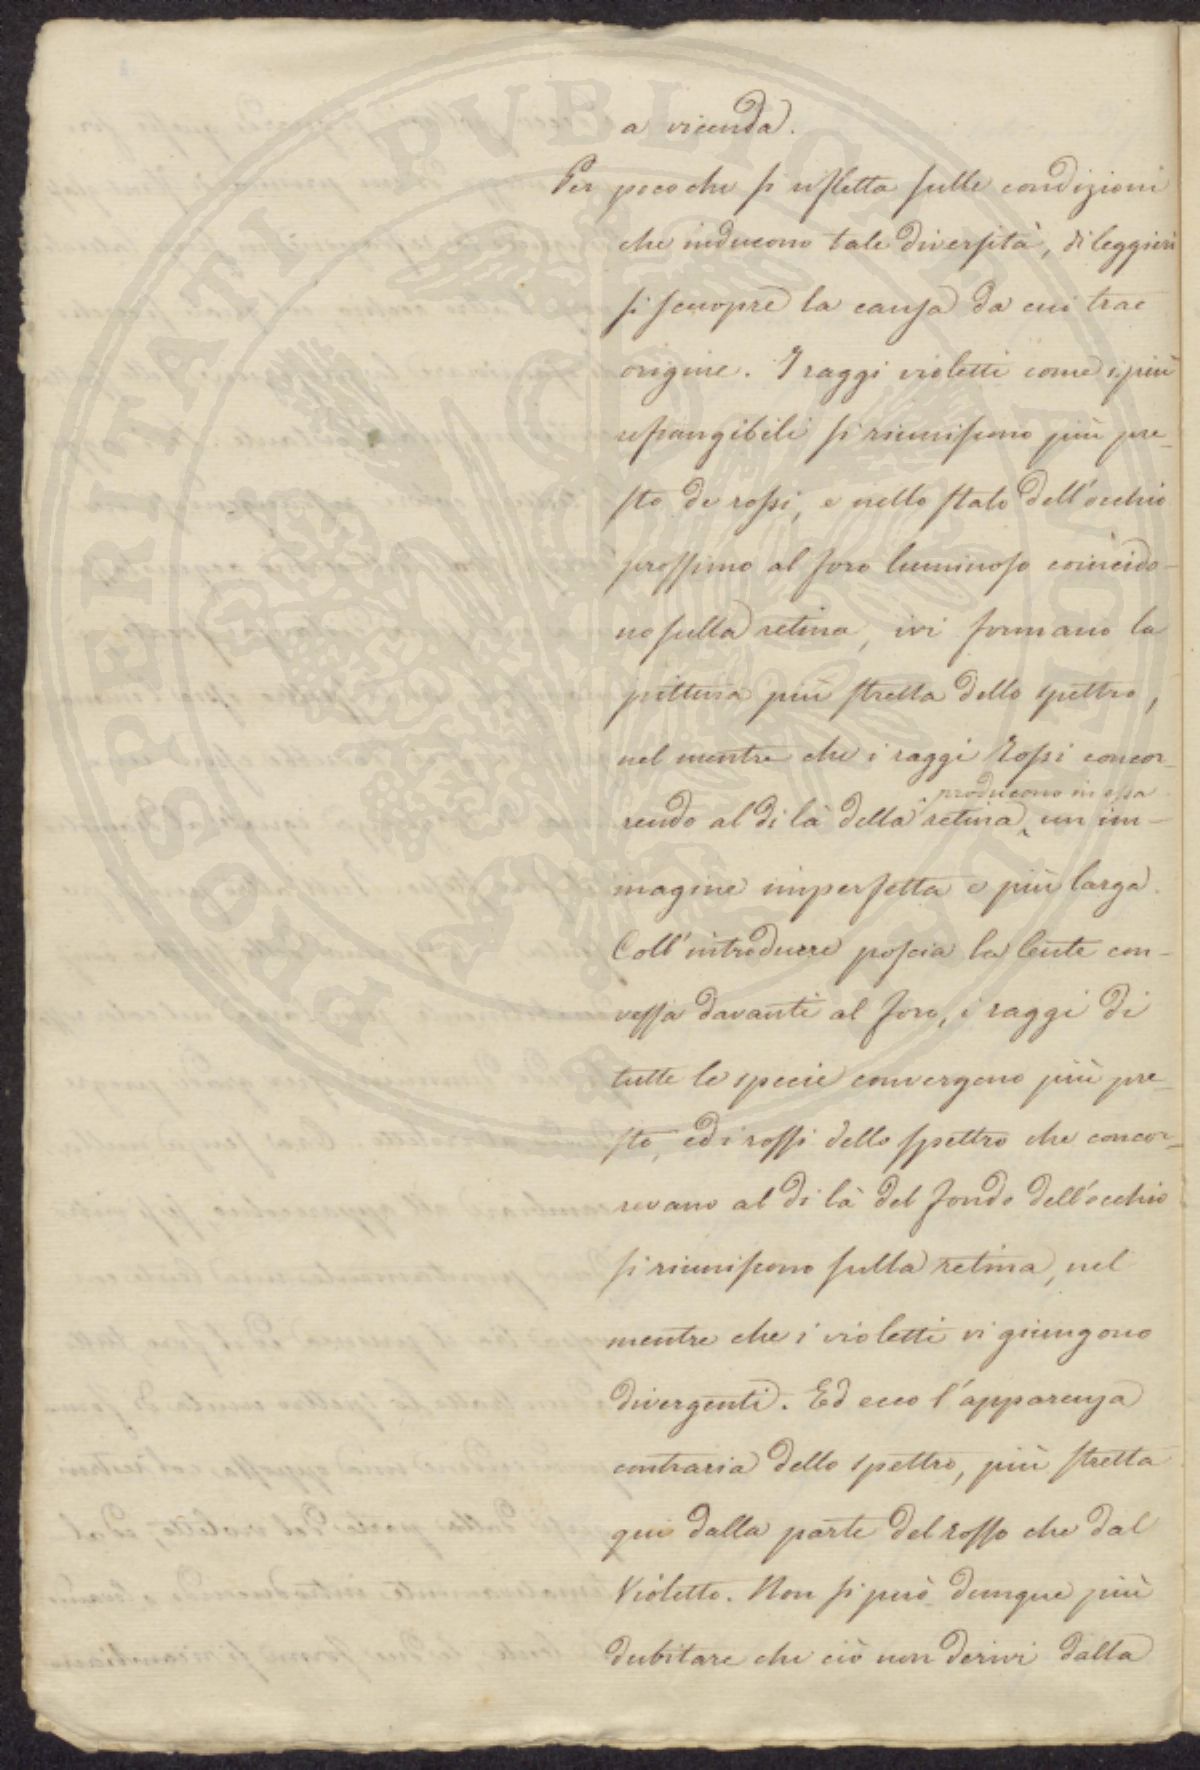 a vicenda.
Per poco che si rifletta sulle condizioni
che inducono tale diversità, di leggieri
si scuopre la causa da cui trae
origine. I raggi violetti come i più
refrangibili si riuniscono più pre-
sto de rossi, e nello stato dell'occhio
prossimo al foro luminoso coincido-
no sulla retina, ivi formano la
pittura più stretta dello spettro,
nel mentre che i raggi Rossi concor-
producono in essa
rendo al di là della retina un im-
magine imperfetta e più larga.
Coll'introdurre poscia la lente con-
vessa davanti al foro, i raggi di
tutte le specie convergono più pre-
sto, ed i rossi dello spettro che concor-
revano al di là del fondo dell'occhio
si riuniscono sulla retina, nel
mentre che i violetti vi giungono
divergenti. Ed ecco l'apparenza
contraria dello spettro, più stretta
qui dalla parte del rosso che dal
Violetto. Non si può dunque più
dubitare che ciò non derivi dalla
PROSPERITATI PVBLICAE AVGENDAE